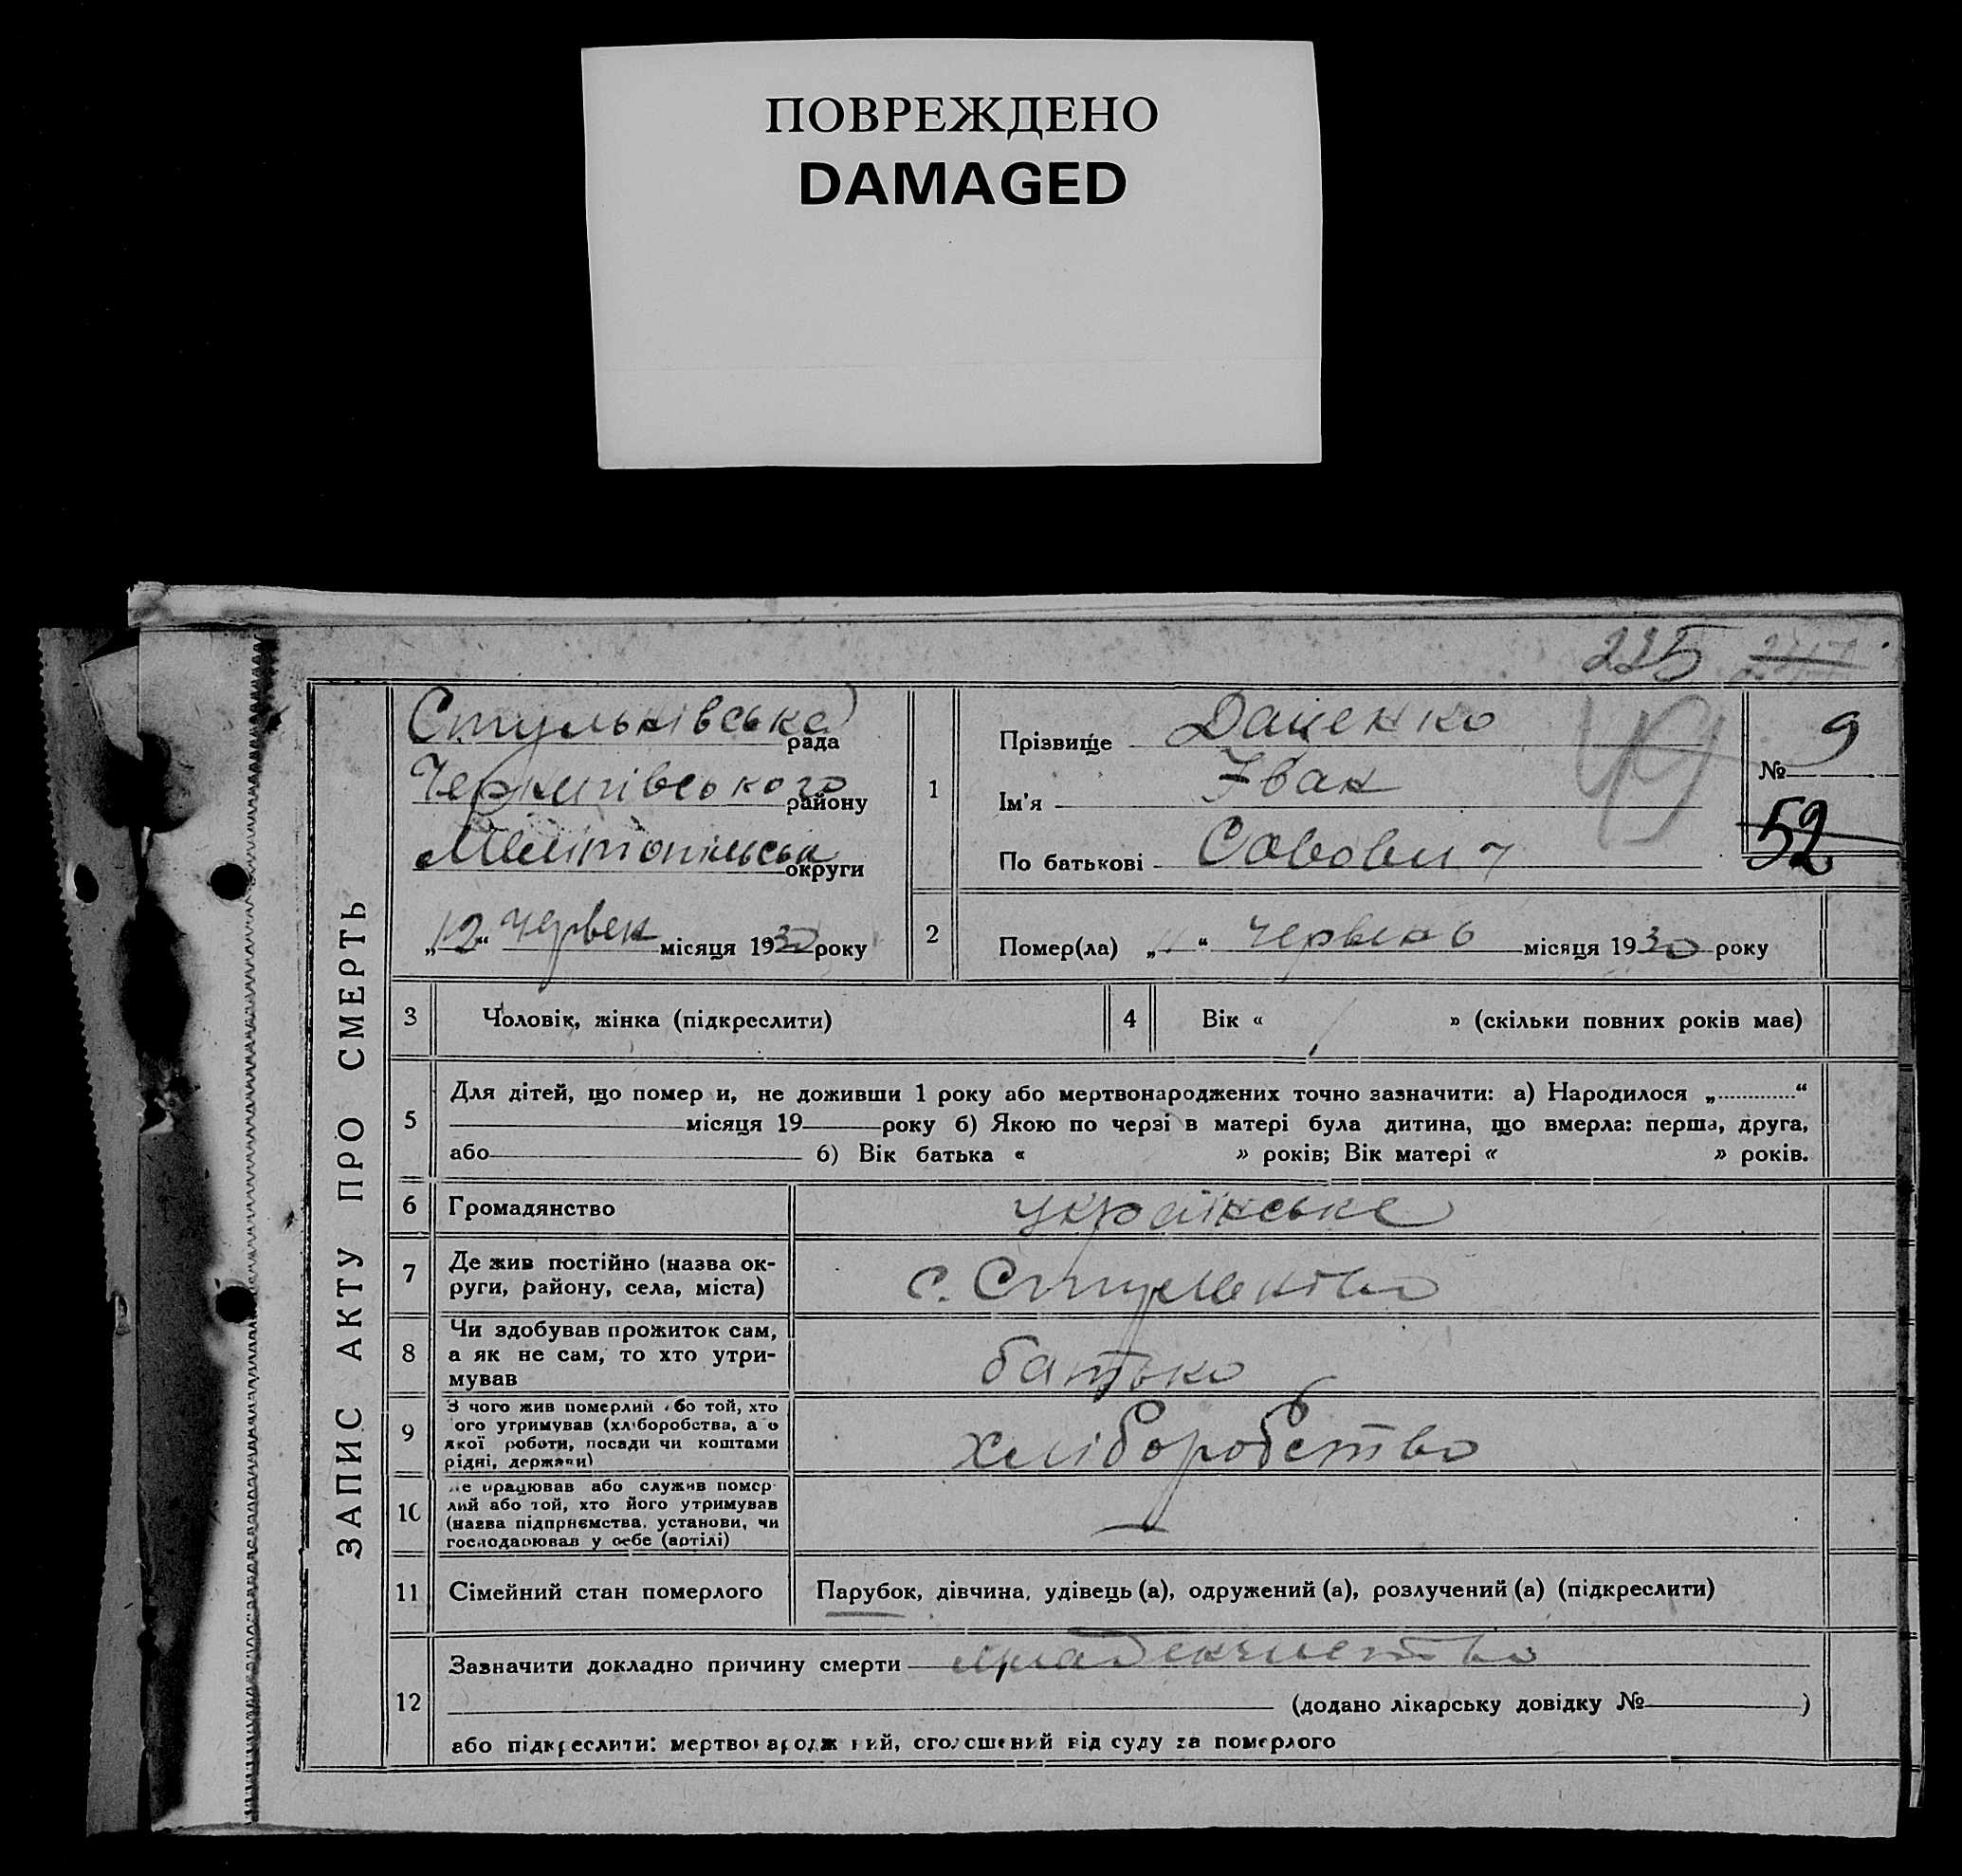 ПОВРЕЖДЕНО
DAMAGED
225
ЗАПИС АКТУ ПРО СМЕРТЬ
рада
району
округи
„12“ червен місяця 1930 року
1
Прізвище Даценко
Ім'я Іван
По батькові Савович
№ 9
52
2
Помер(ла) „ “ червень місяця 1930 року
3
Чоловік, жінка (підкреслити)
4
Вік « » (скільки повних років має)
5
Для дітей, що помер и, не доживши 1 року або мертвонароджених точно зазначити: а) Народилося „ “
місяця 19 року б) Якою по черзі в матері була дитина, що вмерла: перша, друга,
або б) Вік батька « » років; Вік матері « » років.
6
Громадянство
українське
7
Де жив постійно (назва ок-
руги, району, села, міста)
с.
8
Чи здобував прожиток сам,
а як не сам, то хто утри-
мував
батько
9
З чого жив померлий або той, хто
ого утримував (хліборобства, а о
якої роботи, посади чи коштами
рідні, держави)
хліборобство
10
е працював або служив помер-
лий або той, хто його утримував
(назва підприємства, установи, чи
господарював у себе (артілі)
—
11
Сімейний стан померлого
Парубок, дівчина, удівець (а), одружений (а), розлучений (а) (підкреслити)
12
Зазначити докладно причину смерти
(додано лікарську довідку № )
або підкреслити: мертвонароджений, оголошений від суду за померлого